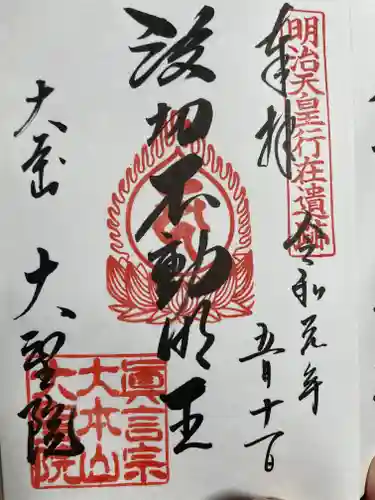 明治天皇行在遺跡
奉拝 令和元年
五月十一日
波切不動明王
大本山 大聖院
眞言宗
大本山
大聖院